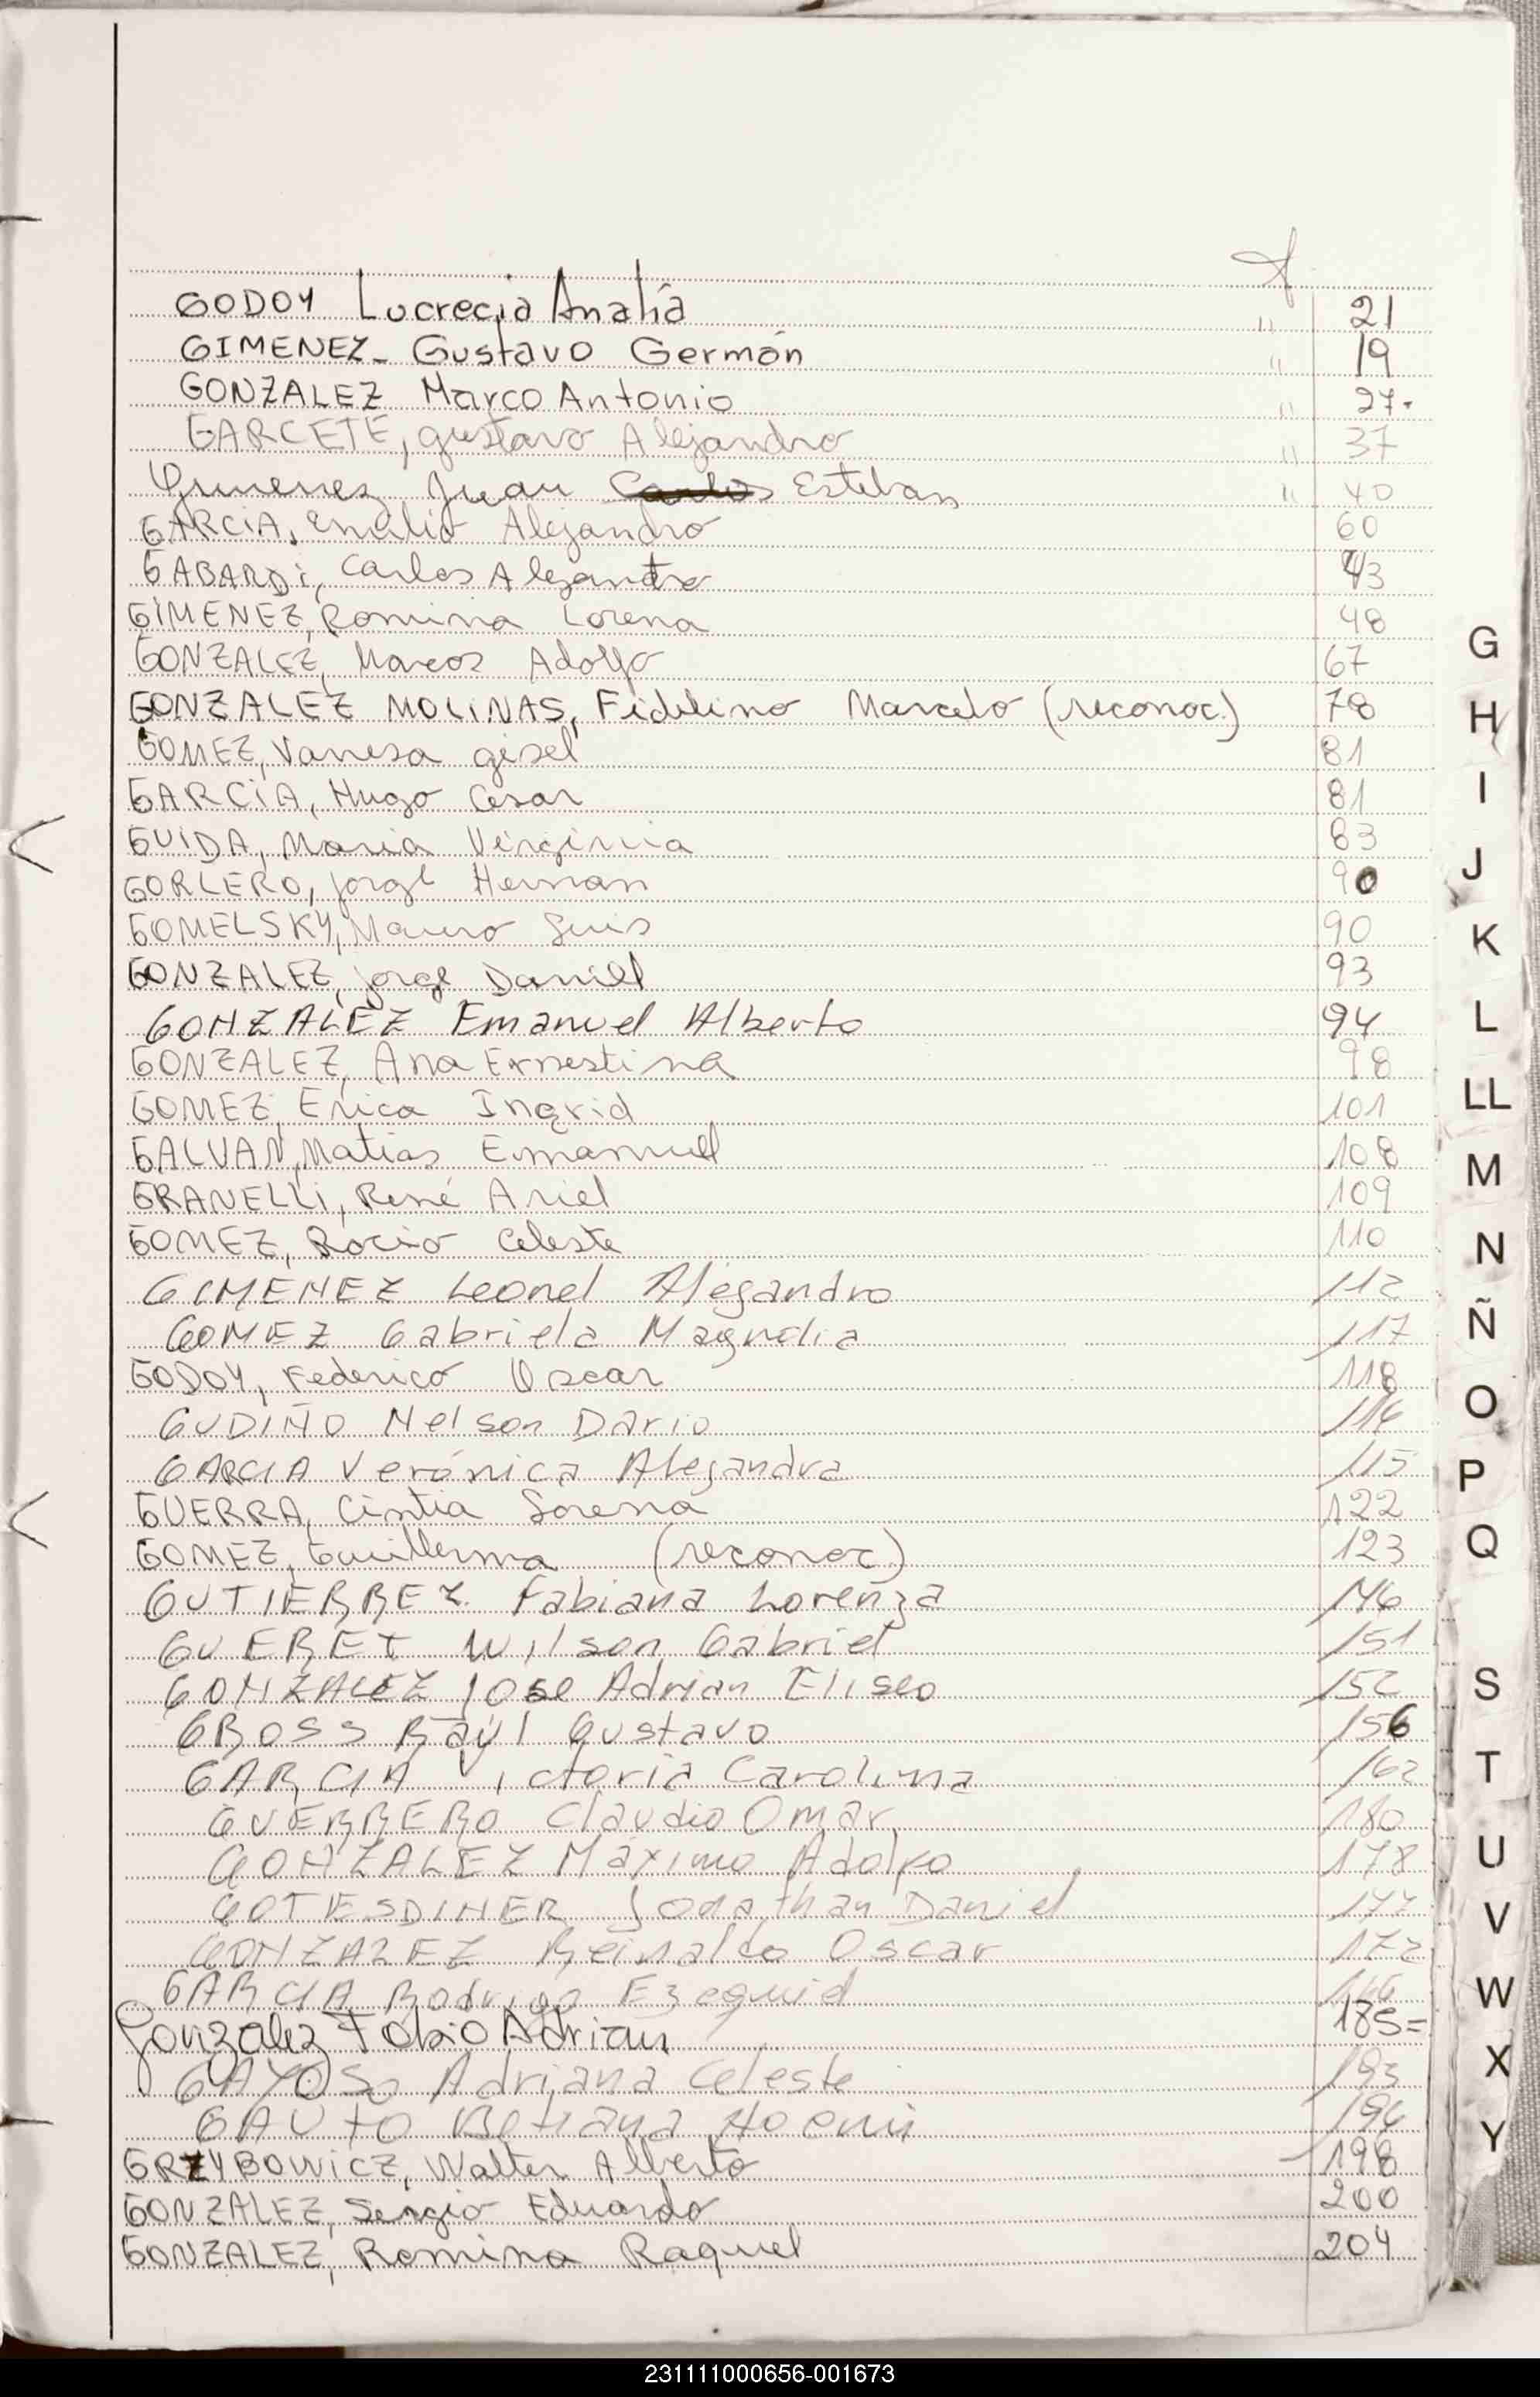 GODOY Lucrecia Analía " 21
GIMENEZ- Gustavo Germán " 19
GONZALEZ Marco Antonio " 27.
GARCETE, gustavo Alejandro " 37
Gimenez Juan Carlos Esteban " 40
GARCIA, Emilio Alejandro 60
GABARDI, Carlos Alejandro 43
GIMENEZ, Romina Lorena 48
GONZALEZ, Marcos Adolfo 67
GONZALEZ MOLINAS, Fidelino Marcelo (reconoc.) 78
GOMEZ, Vanesa gisel 81
GARCIA, Hugo Cesar 81
GUIDA, Maria Virginia 83
GORLERO, Jorge Hernan 90
GOMELSKY, Mauro Luis 90
GONZALEZ, jorge Daniel 93
GONZALEZ Emanuel Alberto 94
GONZALEZ, Ana Ernestina 98
GOMEZ, Erica Ingrid 101
GALVAN, Matias Emanuel 108
GRANELLI, René Ariel 109
GOMEZ, Rocio Celeste 110
GIMENEZ Leonel Alejandro 112
GOMEZ Gabriela Magnolia 117
GODOY, Federico Oscar 118
GUDIÑO Nelson Dario 114
GARCIA Verónica Alejandra 115
GUERRA, Cintia Lorena 122
GOMEZ, Guillerma (reconoc.) 123
GUTIERREZ Fabiana Lorenza 146
GUERET Wilson Gabriel 151
GONZALEZ Jose Adrian Eliseo 152
GROSS Raúl Gustavo 156
GARCIA Victoria Carolina 162
GUERRERO Claudio Omar 180
GONZALEZ Máximo Adolfo 178
GOTESDINER Jonathan Daniel 177
GONZALEZ Reinaldo Oscar 172
GARCIA Rodrigo Ezequiel
Gonzalez Fabio Adrian 185=
GAYOSO Adriana Celeste 193
GAUTO Betiana Noemi 194
GRZYBOWICZ, Walter Alberto 198
GONZALEZ, Sergio Eduardo 200
GONZALEZ, Romina Raquel 204
G
H
I
J
K
L
LL
M
N
Ñ
O
P
Q
S
T
U
V
W
X
Y
231111000656-001673